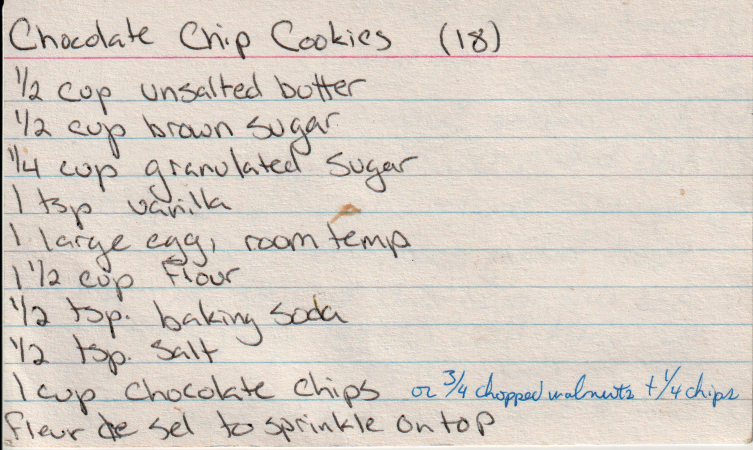 Chocolate Chip Cookies (18)
1/2 cup unsalted butter
1/2 cup brown sugar
1/4 cup granulated sugar
1 tsp vanilla
1 large egg, room temp
1 1/2 cup flour
1/2 tsp. baking soda
1/2 tsp. salt
1 cup chocolate chips or 3/4 chopped walnuts + 1/4 chips
fleur de sel to sprinkle on top